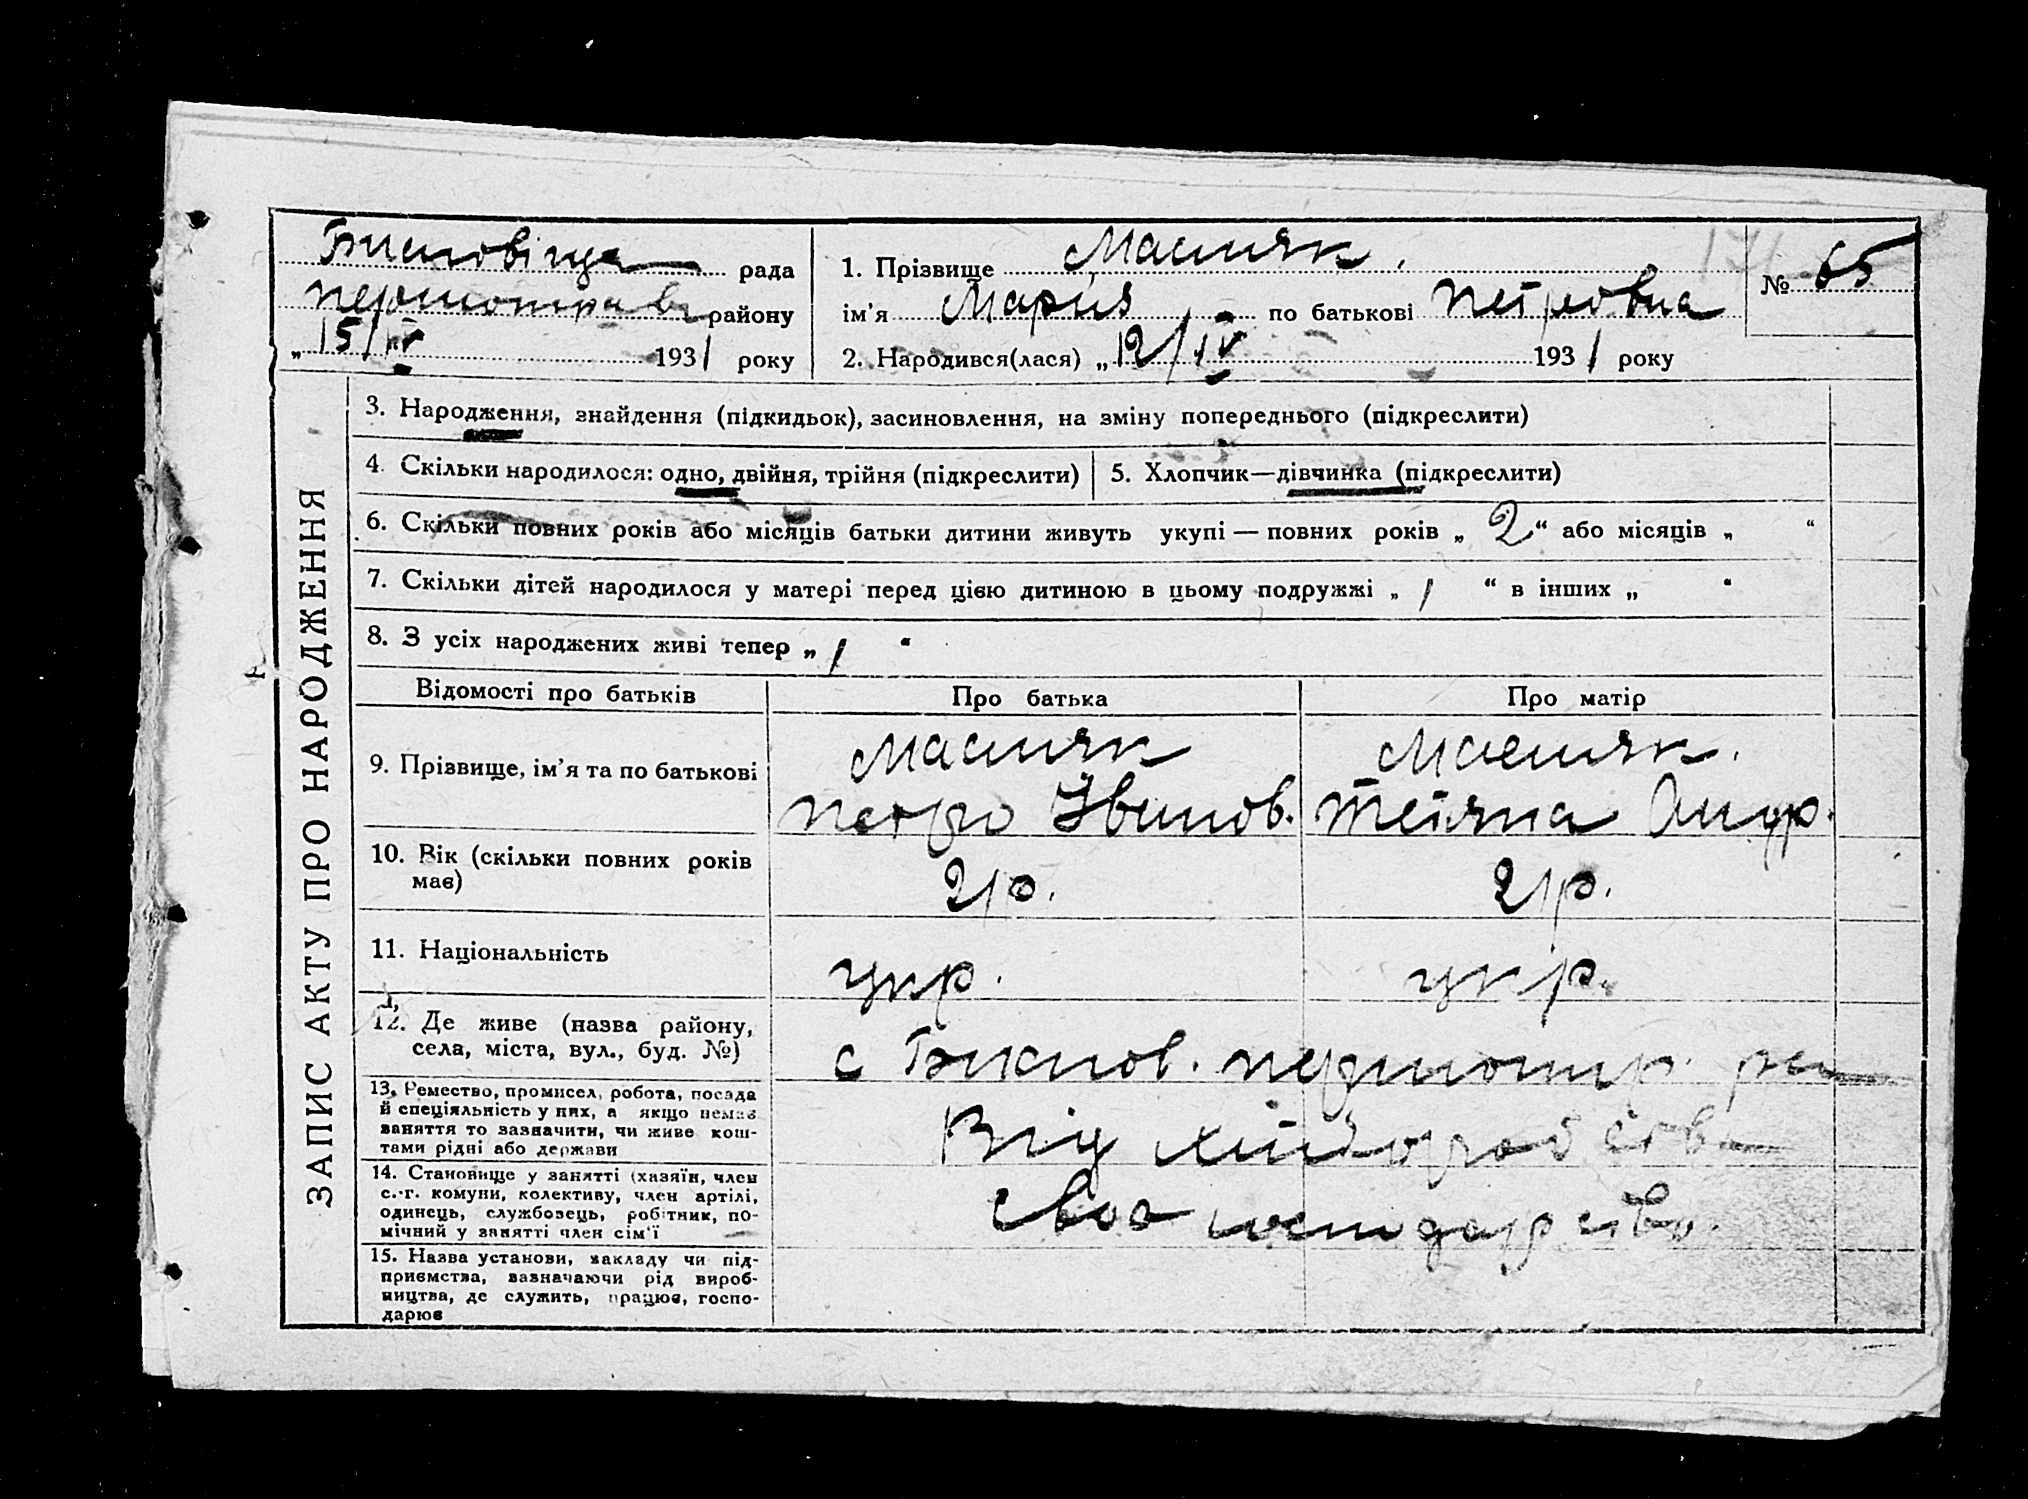 рада
району
„ 15/IV 1931 року
1. Прізвище Масняк.
ім’я Марія по батькові Петровна
2. Народився(лася) „ 12/IV 1931 року
№ 65
ЗАПИС АКТУ ПРО НАРОДЖЕННЯ
3. Народження, знайдення (підкидьок), засиновлення, на зміну попереднього (підкреслити)
4. Скільки народилося: одно, двійня, трійня (підкреслити)
5. Хлопчик—дівчинка (підкреслити)
6. Скільки повних років або місяців батьки дитини живуть укупі — повних років „ 2 “ або місяців „ “
7. Скільки дітей народилося у матері перед цією дитиною в цьому подружжі „ 1 “ в інших „ “
8. З усіх народжених живі тепер „ 1 “
Відомості про батьків
Про батька
Про матір
9. Прізвище, ім’я та по батькові
Масняк
Петро Іванов.
Масняк.
Тетяна Андр.
10. Вік (скільки повних років
має)
21р.
21р.
11. Національність
укр.
укр.
12. Де живе (назва району,
села, міста, вул., буд. №)
с
13. Ремество, промисел, робота, посада
й спеціяльність у них, а якщо немає
заняття то зазначити, чи живе кош-
тами рідні або держави
Від хліборобства
14. Становище у занятті (хазяїн, член
с.-г. комуни, колективу, член артілі,
одинець, службовець, робітник, по-
мічний у занятті член сім’ї
своє господарство.
15. Назва установи, закладу чи під-
приємства, зазначаючи рід вироб-
ництва, де служить, працює, госпо-
дарює